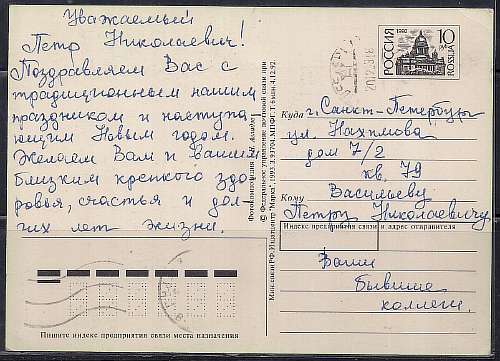 Уважаемый
Петр Николаевич!
Поздравляем Вас с
традиционным нашим
праздником и наступа
ющим Новым годом.
Желаем Вам и Вашим
близким крепкого здо
ровья, счастья и дол
гих лет жизни.
Пишите индекс предприятия связи места назначения
© Федеральное управление почтовой связи при
Минсвязи РФ. Издатцентр "Марка". 1993.
4.12.92.
РОССИЯ
1992
10
ROSSIJA
20.12.93
Куда
г. Санкт-Петербург
ул. Нахимова
дом 7/2
кв. 79
Кому
Васильеву
Петру Николаевичу
Индекс предприятия связи и адрес отправителя
Ваши
бывшие
коллеги.